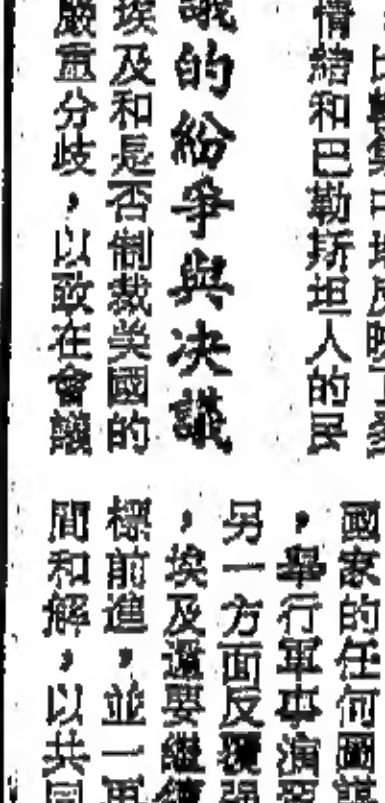 情緒和巴勒斯坦人的民
議的紛爭與決議
埃及和是否制裁美國的
嚴重分歧，以致在會議
國家的任何圖謀
，舉行軍事演習
另一方面反覆強
，埃及還要繼續
標前進，並一再
間和解，以共同